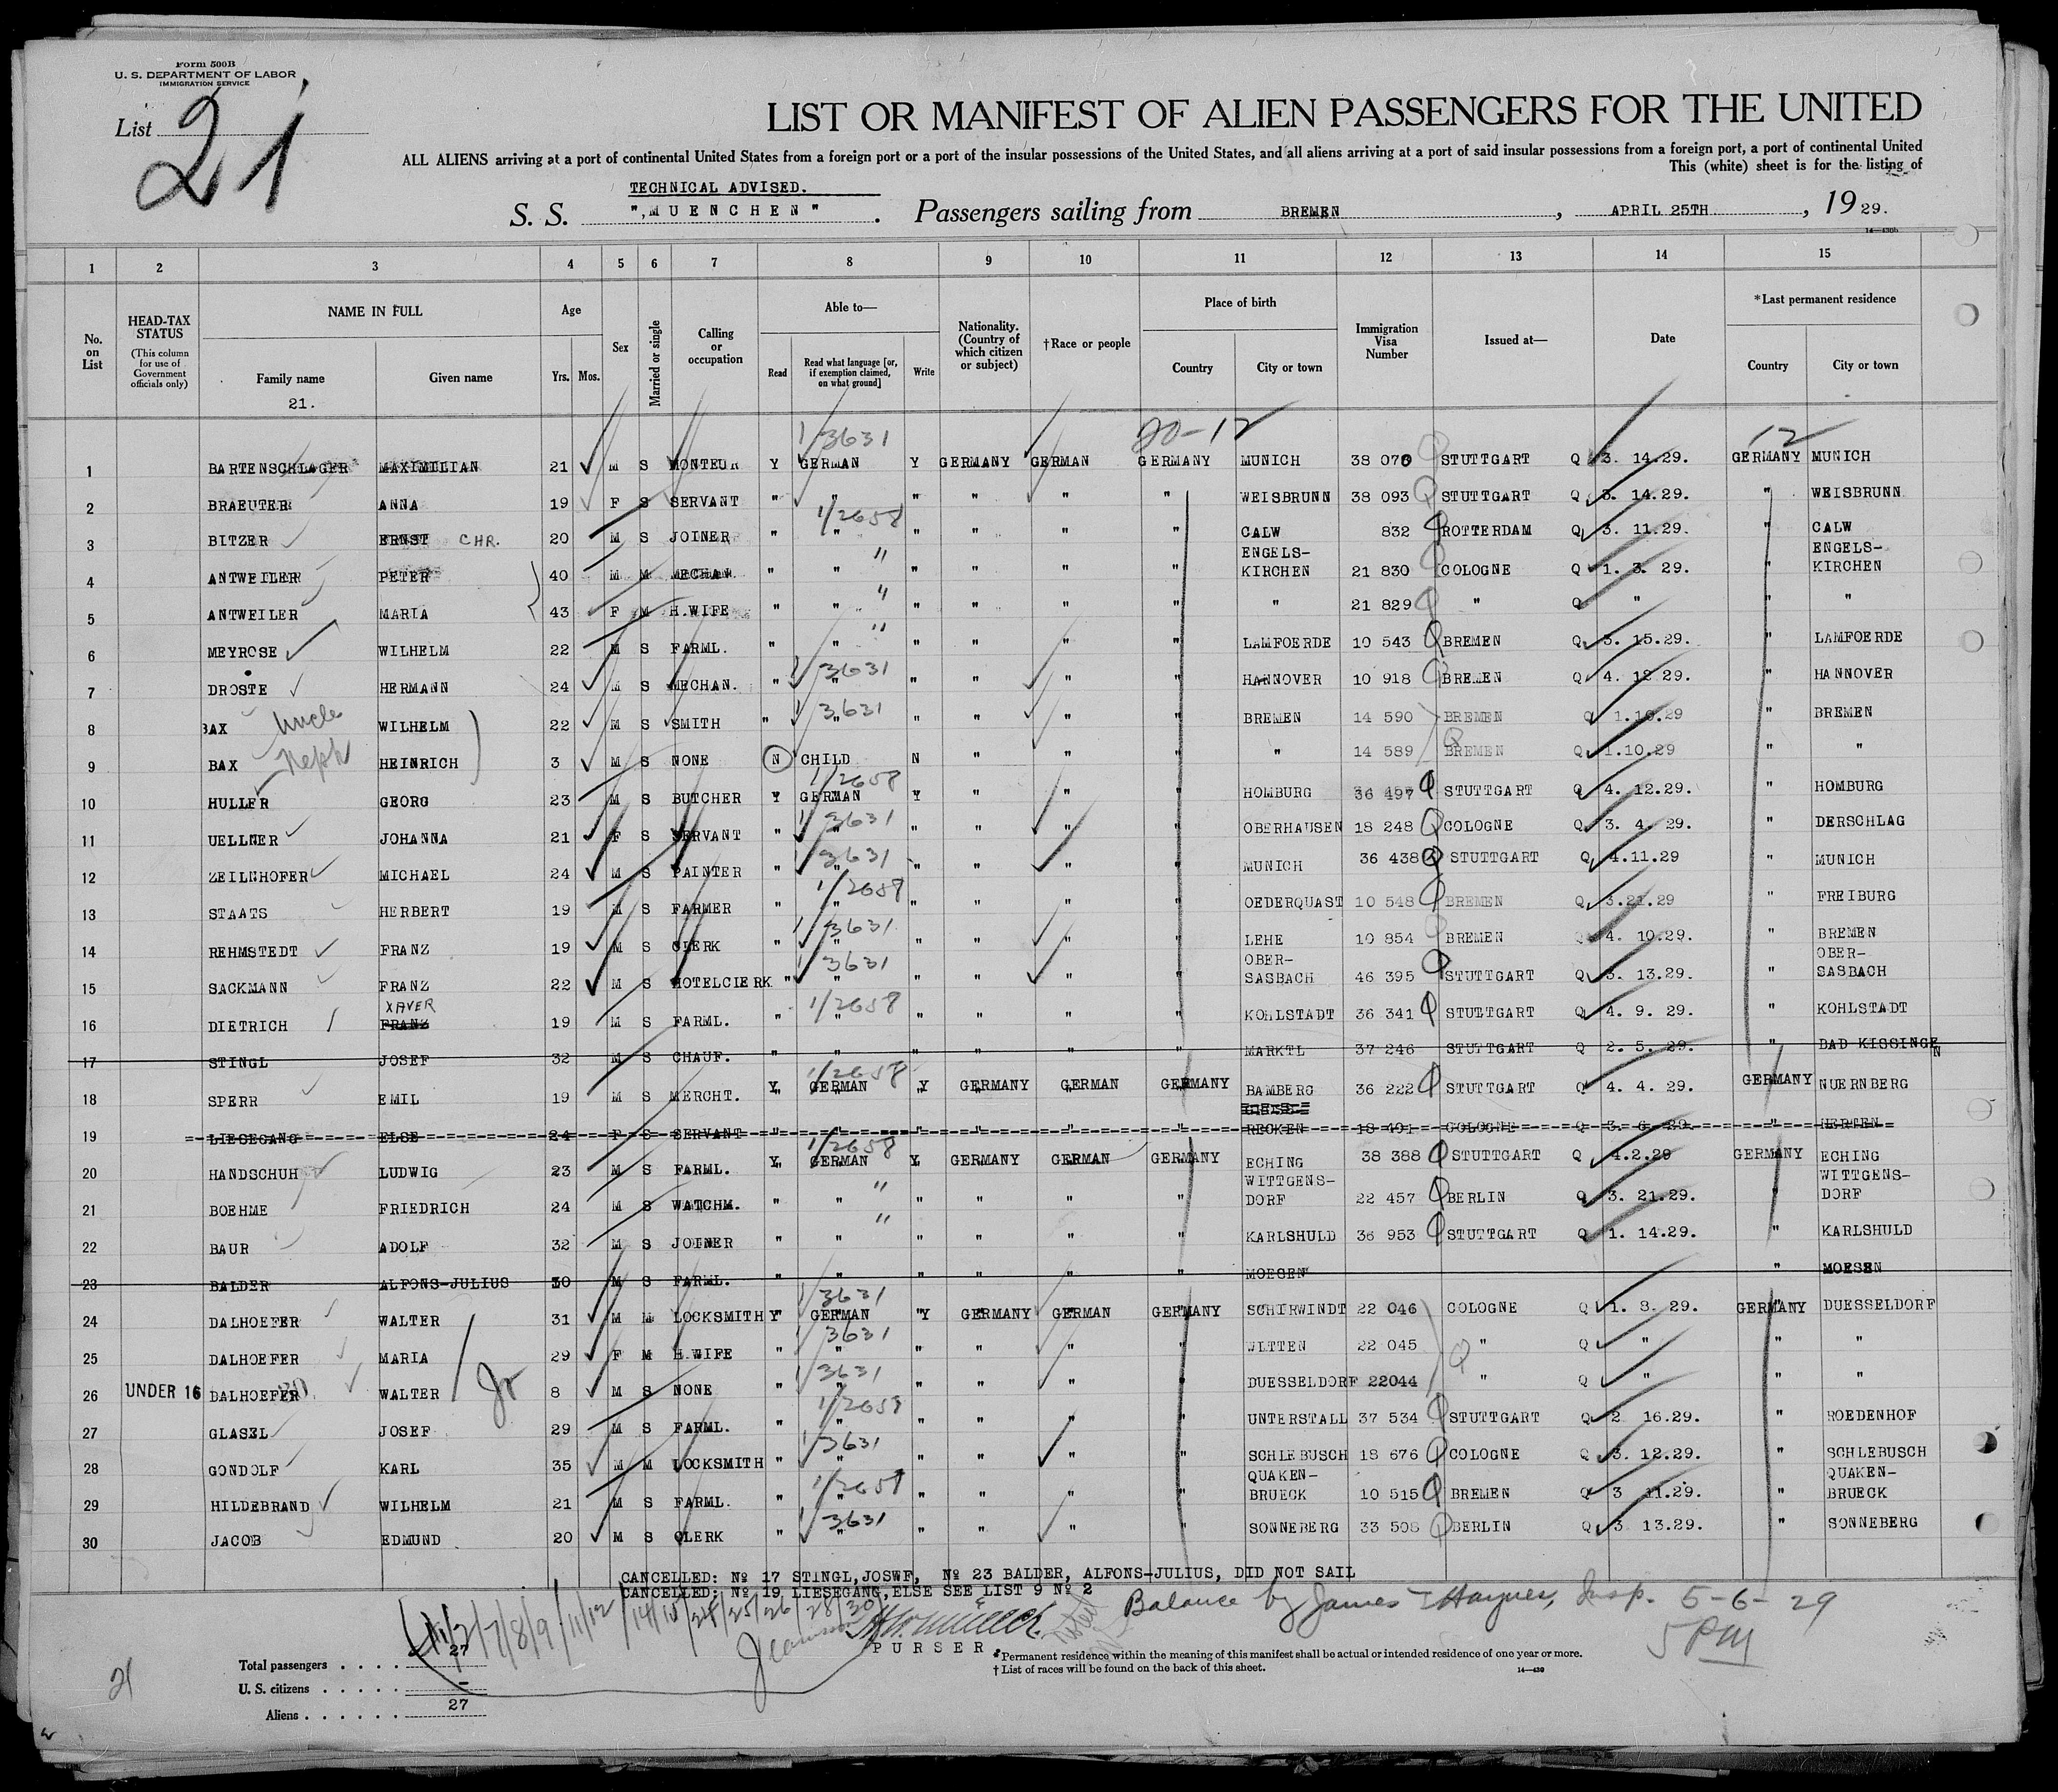 Form 500B
U. S. DEPARTMENT OF LABOR
IMMIGRATION SERVICE
List 21
LIST OR MANIFEST OF ALIEN PASSENGERS FOR THE UNITED
ALL ALIENS arriving at a port of continental United States from a foreign port or a port of the insular possessions of the United States, and all aliens arriving at a port of said insular possessions from a foreign port, a port of continental United
This (white) sheet is for the listing of
TECHNICAL ADVISED.
S. S. "MUENCHEN". Passengers sailing from BREMEN, APRIL 25TH, 1929.
14—430b
1 2 3 4 5 6 7 8 9 10 11 12 13 14 15
No. on List
HEAD-TAX STATUS
(This column for use of Government officials only)
NAME IN FULL
Family name
Given name
21.
Age
Yrs. Mos.
Sex
Married or single
Calling or occupation
Able to—
Read
Read what language [or, if exemption claimed, on what ground]
Write
Nationality. (Country of which citizen or subject)
†Race or people
Place of birth
Country
City or town
Immigration Visa Number
Issued at—
Date
*Last permanent residence
Country
City or town
1/3631 20-12 12
1 BARTENSCHLAGER MAXIMILIAN 21 M S MONTEUR Y GERMAN Y GERMANY GERMAN GERMANY MUNICH 38 070 STUTTGART Q 3. 14.29. GERMANY MUNICH
2 BRAEUTER ANNA 19 F S SERVANT " " " " " " WEISBRUNN 38 093 STUTTGART Q 3. 14.29. " WEISBRUNN
1/2658
3 BITZER ERNST CHR. 20 M S JOINER " " " " " " CALW 832 ROTTERDAM Q 3. 11.29. " CALW
4 ANTWEILER PETER 40 M M MECHAN. " " " " " " ENGELS-KIRCHEN 21 830 COLOGNE Q 1. 3. 29. " ENGELS-KIRCHEN
5 ANTWEILER MARIA 43 F M H.WIFE " " " " " " " 21 829 " Q " " "
6 MEYROSE WILHELM 22 M S FARML. " " " " " " LAMFOERDE 10 543 BREMEN Q 3. 15.29. " LAMFOERDE
1/3631
7 DROSTE HERMANN 24 M S MECHAN. " " " " " " HANNOVER 10 918 BREMEN Q 4. 12 29. " HANNOVER
1/3631
8 BAX Uncle WILHELM 22 M S SMITH " " " " " " BREMEN 14 590 BREMEN Q 1.10.29 " BREMEN
9 BAX Neph HEINRICH 3 M S NONE N CHILD N " " " " 14 589 BREMEN Q 1.10.29 " "
1/2658
10 HULLER GEORG 23 M S BUTCHER Y GERMAN Y " " " HOMBURG 36 497 STUTTGART Q 4. 12.29. " HOMBURG
1/3631
11 UELLNER JOHANNA 21 F S SERVANT " " " " " " OBERHAUSEN 18 248 COLOGNE Q 3. 4. 29. " DERSCHLAG
1/3631
12 ZEILNHOFER MICHAEL 24 M S PAINTER " " " " " " MUNICH 36 438 STUTTGART Q 4.11.29 " MUNICH
1/2658
13 STAATS HERBERT 19 M S FARMER " " " " " " OEDERQUAST 10 548 BREMEN Q 3.21.29 " FREIBURG
1/3631
14 REHMSTEDT FRANZ 19 M S CLERK " " " " " " LEHE 10 854 BREMEN 4. 10.29. " BREMEN
1/3631
15 SACKMANN FRANZ 22 M S HOTELCLERK " " " " " " OBER-SASBACH 46 395 STUTTGART Q 3. 13.29. " OBER-SASBACH
1/2658
16 DIETRICH XAVER FRANZ 19 M S FARML. " " " " " " KOHLSTADT 36 341 STUTTGART Q 4. 9. 29. " KOHLSTADT
17 STINGL JOSEF 32 M S CHAUF. " " " " " " MARKTL 37 246 STUTTGART Q 2. 5. 29. " BAD KISSINGEN
1/2658
18 SPERR EMIL 19 M S MERCHT. Y GERMAN Y GERMANY GERMAN GERMANY BAMBERG 36 222 STUTTGART Q 4. 4. 29. GERMANY NUERNBERG
19 LIESEGANG ELSE 24 F S SERVANT " " " " " " RECKEN 18 491 COLOGNE Q 3. 6. 29. " HERTEN
1/2658
20 HANDSCHUH LUDWIG 23 M S FARML. Y GERMAN Y GERMANY GERMAN GERMANY ECHING 38 388 STUTTGART Q 4.2.29 GERMANY ECHING
21 BOEHME FRIEDRICH 24 M S WATCHM. " " " " " " WITTGENS-DORF 22 457 BERLIN Q 3. 21.29. " WITTGENS-DORF
22 BAUR ADOLF 32 M S JOINER " " " " " " KARLSHULD 36 953 STUTTGART Q 1. 14.29. " KARLSHULD
23 BALDER ALFONS-JULIUS 30 M S FARML. " " " " " " MOESEN " MOESEN
1/3631
24 DALHOEFER WALTER 31 M M LOCKSMITH Y GERMAN Y GERMANY GERMAN GERMANY SCHIRWINDT 22 046 COLOGNE Q 1. 8. 29. GERMANY DUESSELDORF
1/3631
25 DALHOEFER MARIA 29 F M H.WIFE " " " " " " WITTEN 22 045 " Q " " "
1/3631
26 UNDER 16 DALHOEFER WALTER Jr 8 M S NONE " " " " " " DUESSELDORF 22044 " Q " " "
1/2658
27 GLASEL JOSEF 29 M S FARML. " " " " " " UNTERSTALL 37 534 STUTTGART Q 2 16.29. " ROEDENHOF
1/3631
28 GONDOLF KARL 35 M M LOCKSMITH " " " " " " SCHLEBUSCH 18 676 COLOGNE Q 3. 12.29. " SCHLEBUSCH
1/2658
29 HILDEBRAND WILHELM 21 M S FARML. " " " " " " QUAKEN-BRUECK 10 515 BREMEN Q 3 11.29. " QUAKEN-BRUECK
1/3631
30 JACOB EDMUND 20 M S CLERK " " " " " " SONNEBERG 33 508 BERLIN Q 3 13.29. " SONNEBERG
CANCELLED: No 17 STINGL,JOSWF, No 23 BALDER, ALFONS-JULIUS, DID NOT SAIL
CANCELLED: No 19 LIESEGANG,ELSE SEE LIST 9 No 2
Balance by James I Haynes, Insp. 5-6-29
5 PM
1/2/7/8/9/11/12/14/15/24/25/26/28/30
PURSER.
Total passengers . . . . 27
U. S. citizens . . . . . –
Aliens . . . . . . 27
*Permanent residence within the meaning of this manifest shall be actual or intended residence of one year or more.
† List of races will be found on the back of this sheet.
14—430
21